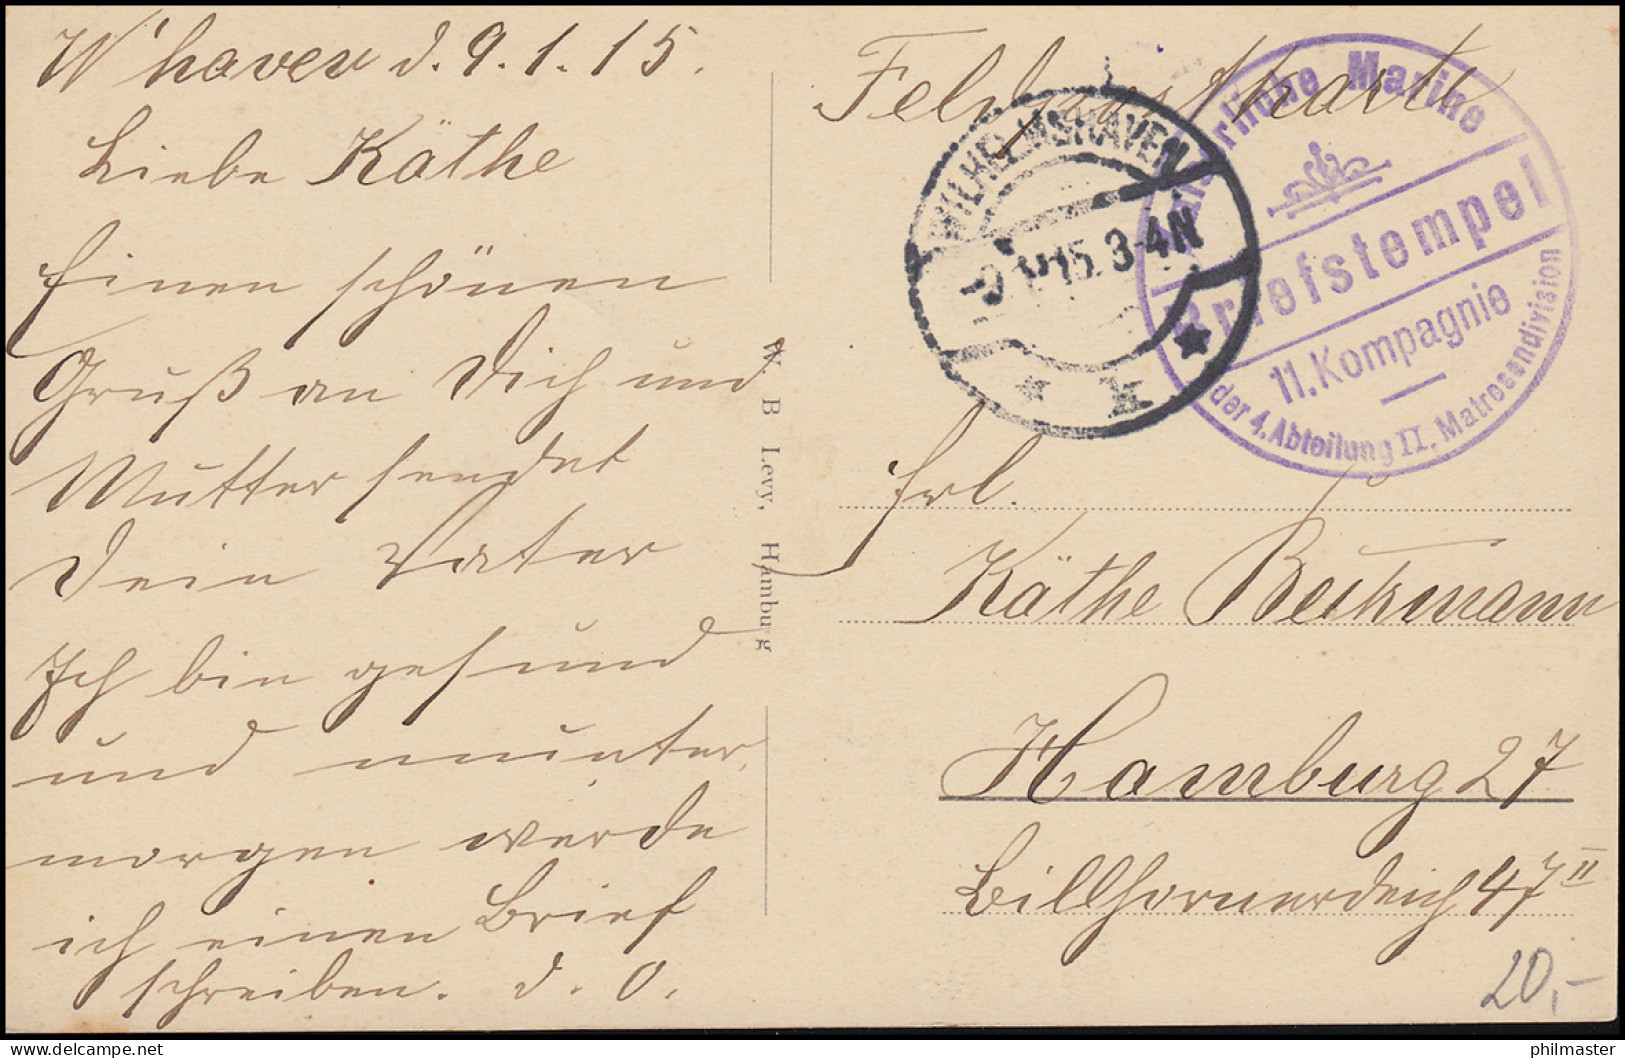 W'haven d. 9.1.15.
Liebe Käthe
Einen schönen
Gruß an Dich und
Mutter sendet
Dein Vater
Ich bin gesund
und munter,
morgen werde
ich einen Brief
schreiben. d. O.
W. B. Levy, Hamburg
Feldpostkarte
WILHELMSHAVEN
9.1.15. 3-4N
* *
Kaiserliche Marine
Briefstempel
11. Kompagnie
der 4. Abteilung II. Matrosendivision
Frl.
Käthe Beckmann
Hamburg 27
Billhornerdeich 47 II
20,-
philmaster